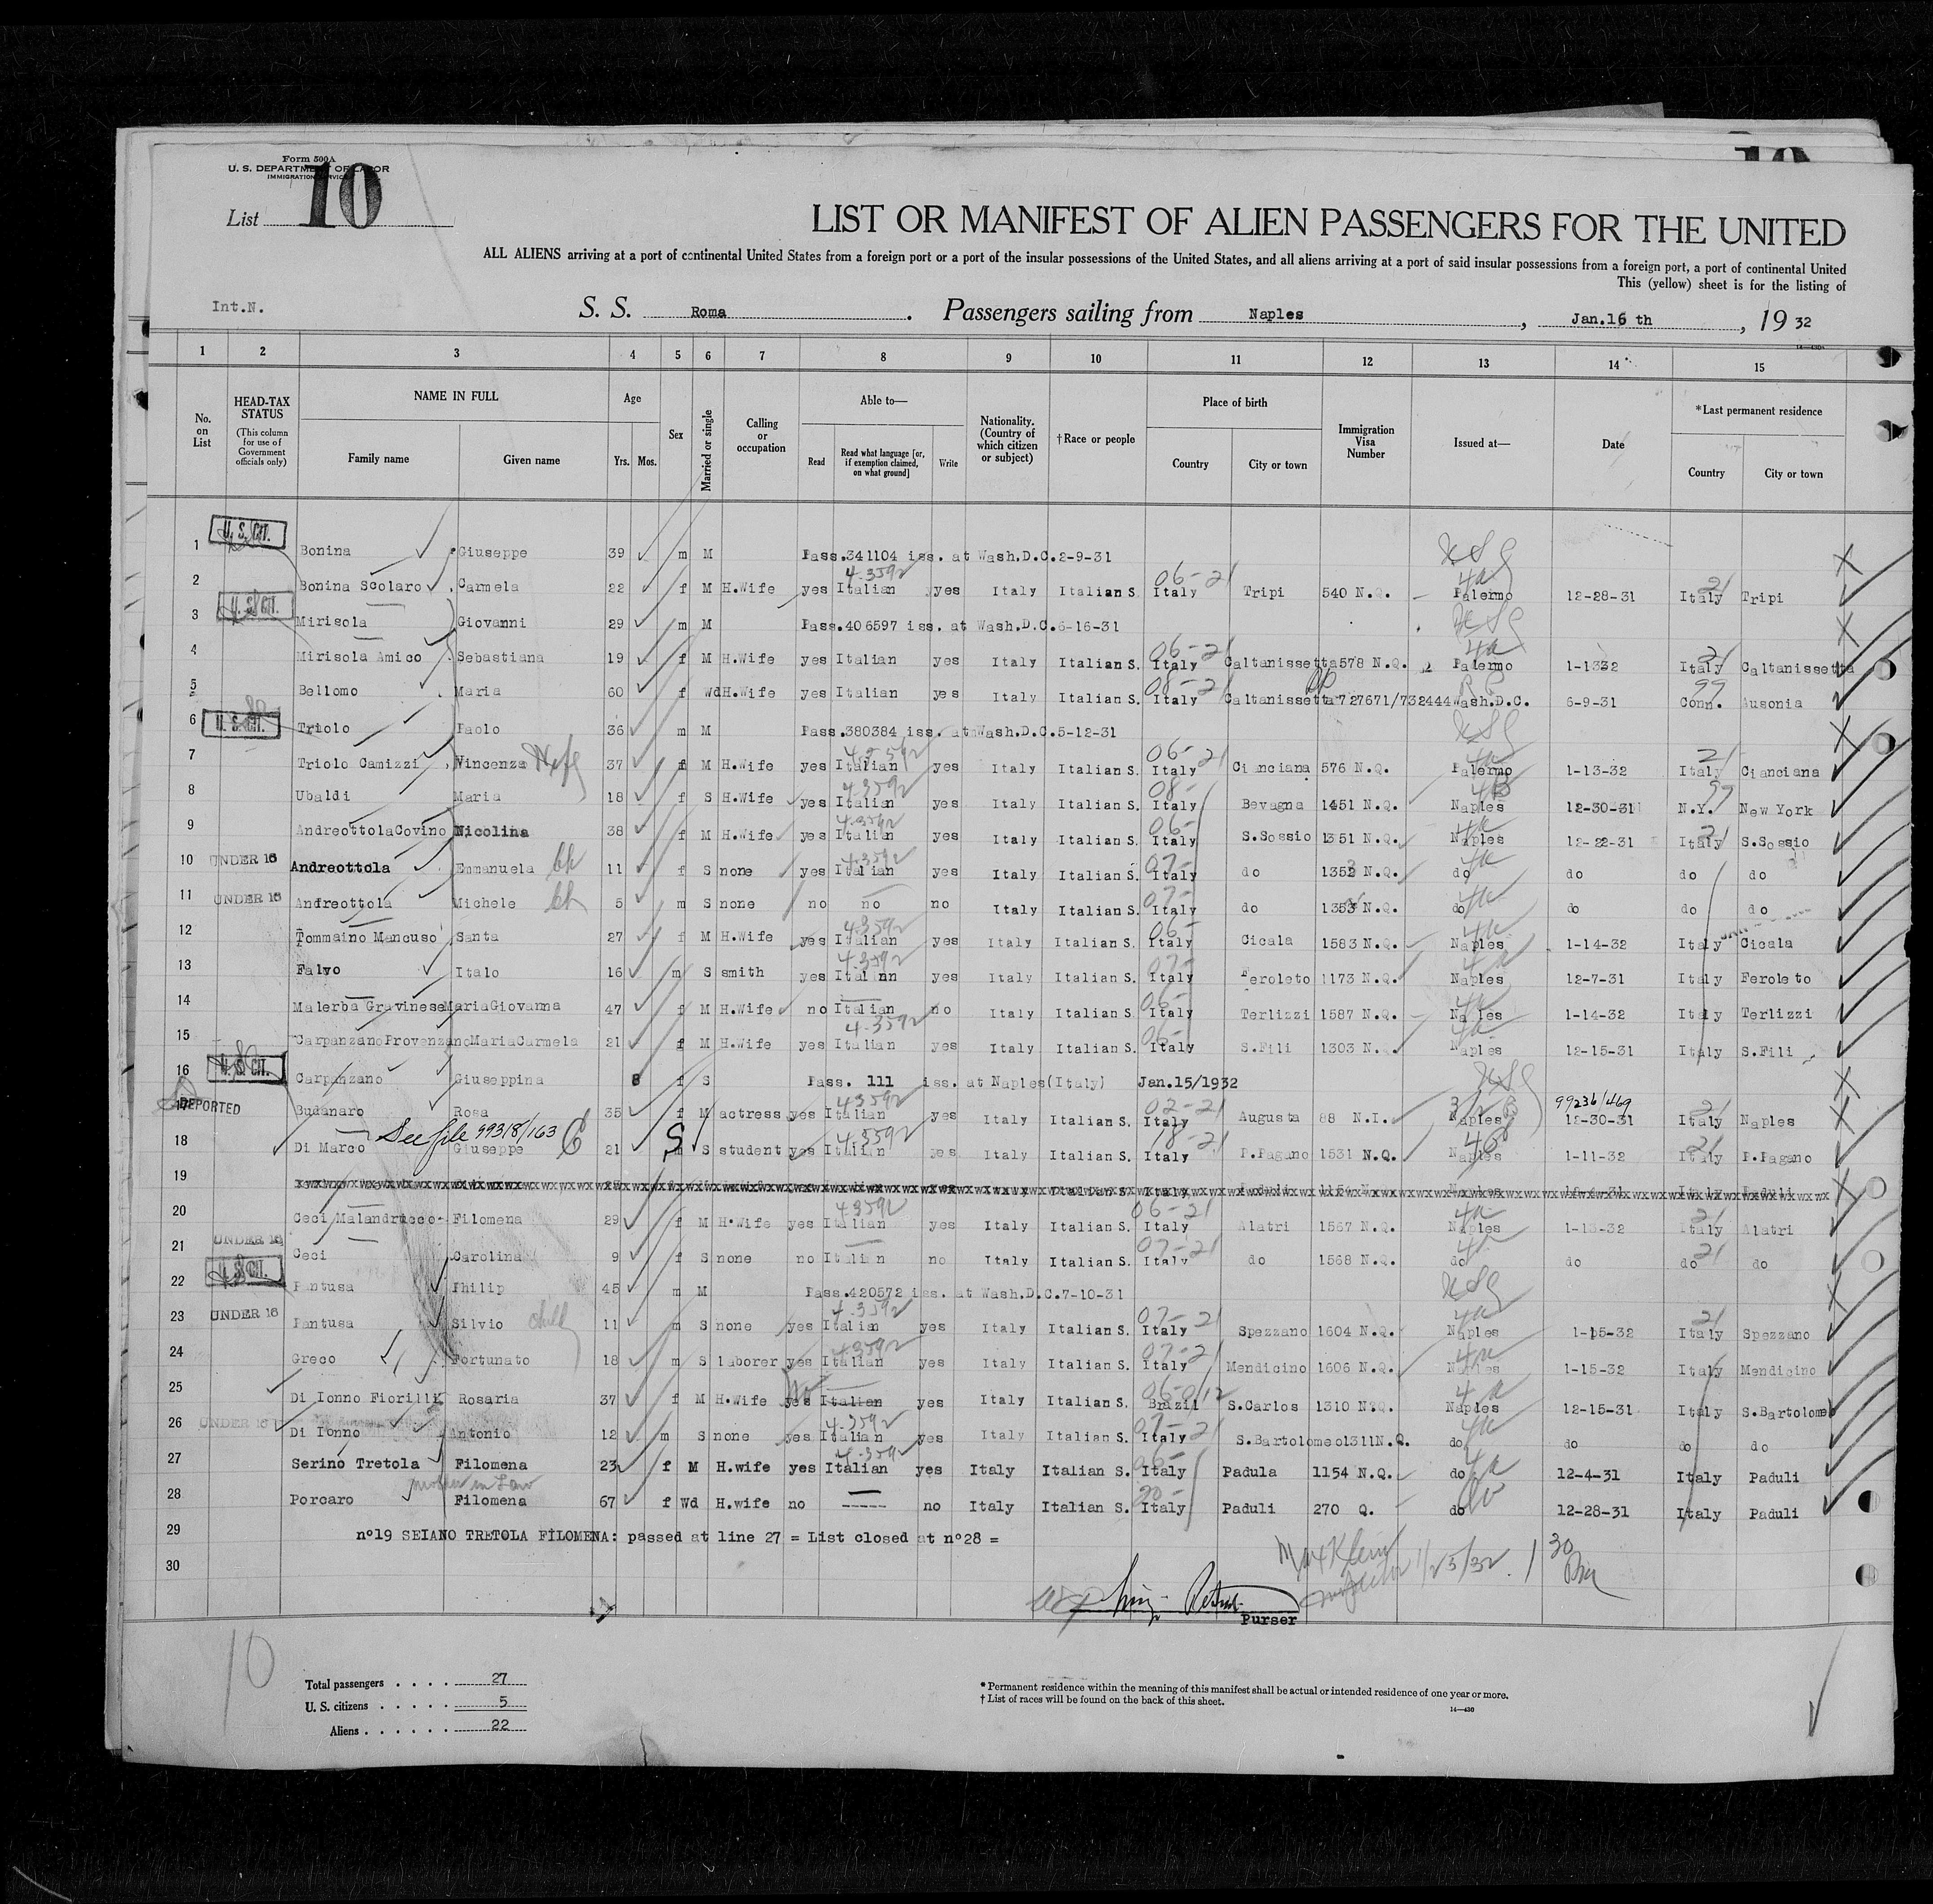 Form 500A
U. S. DEPARTMENT OF LABOR
IMMIGRATION SERVICE
List 10
LIST OR MANIFEST OF ALIEN PASSENGERS FOR THE UNITED
ALL ALIENS arriving at a port of continental United States from a foreign port or a port of the insular possessions of the United States, and all aliens arriving at a port of said insular possessions from a foreign port, a port of continental United
This (yellow) sheet is for the listing of
Int.N.
S. S. Roma. Passengers sailing from Naples, Jan.16 th, 19 32
1 2 3 4 5 6 7 8 9 10 11 12 13 14 15
No. on List
HEAD-TAX STATUS (This column for use of Government officials only)
NAME IN FULL Family name Given name
Age Yrs. Mos.
Sex
Married or single
Calling or occupation
Able to— Read Read what language [or, if exemption claimed, on what ground] Write
Nationality. (Country of which citizen or subject)
†Race or people
Place of birth Country City or town
Immigration Visa Number
Issued at—
Date
*Last permanent residence Country City or town
1 U. S. CIT. Bonina Giuseppe 39 m M Pass.341104 iss. at Wash.D.C.2-9-31
2 Bonina Scolaro Carmela 22 f M H.Wife yes Italian yes Italy Italian S. Italy Tripi 540 N.Q. Palermo 12-28-31 Italy Tripi
3 U. S. CIT. Mirisola Giovanni 29 m M Pass.406597 iss. at Wash.D.C.6-16-31
4 Mirisola Amico Sebastiana 19 f M H.Wife yes Italian yes Italy Italian S. Italy Caltanissetta 578 N.Q. Palermo 1-1332 Italy Caltanissetta
5 Bellomo Maria 60 f Wd H.Wife yes Italian yes Italy Italian S. Italy Caltanissetta 727671/732444 Wash.D.C. 6-9-31 Conn. Ausonia
6 U. S. CIT. Triolo Paolo 36 m M Pass.380384 iss. at Wash.D.C.5-12-31
7 Triolo Camizzi Vincenza 37 f M H.Wife yes Italian yes Italy Italian S. Italy Cianciana 576 N.Q. Palermo 1-13-32 Italy Cianciana
8 Ubaldi Maria 18 f S H.Wife yes Italian yes Italy Italian S. Italy Bevagna 1451 N.Q. Naples 12-30-31 N.Y. New York
9 AndreottolaCovino Nicolina 38 f M H.Wife yes Italian yes Italy Italian S. Italy S.Sossio 1351 N.Q. Naples 12-22-31 Italy S.Sossio
10 UNDER 16 Andreottola Emmanuela 11 f S none yes Italian yes Italy Italian S. Italy do 1352 N.Q. do do do do
11 UNDER 16 Andreottola Michele 5 m S none no no no Italy Italian S. Italy do 1353 N.Q. do do do do
12 Tommaino Mancuso Santa 27 f M H.Wife yes Italian yes Italy Italian S. Italy Cicala 1583 N.Q. Naples 1-14-32 Italy Cicala
13 Falvo Italo 16 m S smith yes Italinn yes Italy Italian S. Italy Feroleto 1173 N.Q. Naples 12-7-31 Italy Feroleto
14 Malerba Gravinese MariaGiovanna 47 f M H.Wife no Italian no Italy Italian S. Italy Terlizzi 1587 N.Q. Naples 1-14-32 Italy Terlizzi
15 CarpanzanoProvenzano MariaCarmela 21 f M H.Wife yes Italian yes Italy Italian S. Italy S.Fili 1303 N.Q. Naples 12-15-31 Italy S.Fili
16 U. S. CIT. Carpanzano Giuseppina 8 f S Pass. 111 iss. at Naples(Italy) Jan.15/1932
17 DEPORTED Budanaro Rosa 35 f M actress yes Italian yes Italy Italian S. Italy Augusta 88 N.I. Naples 99236/469 12-30-31 Italy Naples
See file 99318/163
18 Di Marco Giuseppe 21 m S student yes Italian yes Italy Italian S. Italy P.Pagano 1531 N.Q. Naples 1-11-32 Italy P.Pagano
19
20 Ceci Malandrucco Filomena 29 f M H.Wife yes Italian yes Italy Italian S. Italy Alatri 1567 N.Q. Naples 1-13-32 Italy Alatri
21 UNDER 16 Ceci Carolina 9 f S none no Italian no Italy Italian S. Italy do 1568 N.Q. do do do do
22 U. S. CIT. Pantusa Philip 45 m M Pass.420572 iss. at Wash.D.C.7-10-31
23 UNDER 16 Pantusa Silvio 11 m S none yes Italian yes Italy Italian S. Italy Spezzano 1604 N.Q. Naples 1-15-32 Italy Spezzano
24 Greco Fortunato 18 m S laborer yes Italian yes Italy Italian S. Italy Mendicino 1606 N.Q. Naples 1-15-32 Italy Mendicino
25 Di Ionno Fiorilli Rosaria 37 f M H.Wife yes Italian yes Italy Italian S. Brazil S.Carlos 1310 N.Q. Naples 12-15-31 Italy S.Bartolomeo
26 UNDER 16 Di Ionno Antonio 12 m S none yes Italian yes Italy Italian S. Italy S.Bartolomeo 1311 N.Q. do do do do
27 Serino Tretola Filomena 23 f M H.wife yes Italian yes Italy Italian S. Italy Padula 1154 N.Q. do 12-4-31 Italy Paduli
mother in Law
28 Porcaro Filomena 67 f Wd H.wife no ----- no Italy Italian S. Italy Paduli 270 Q. do 12-28-31 Italy Paduli
29 n°19 SEIANO TRETOLA FILOMENA: passed at line 27 = List closed at n°28 =
30
Max Klein 1/25/32
Purser
10
Total passengers 27
U. S. citizens 5
Aliens 22
* Permanent residence within the meaning of this manifest shall be actual or intended residence of one year or more.
† List of races will be found on the back of this sheet.
14—430